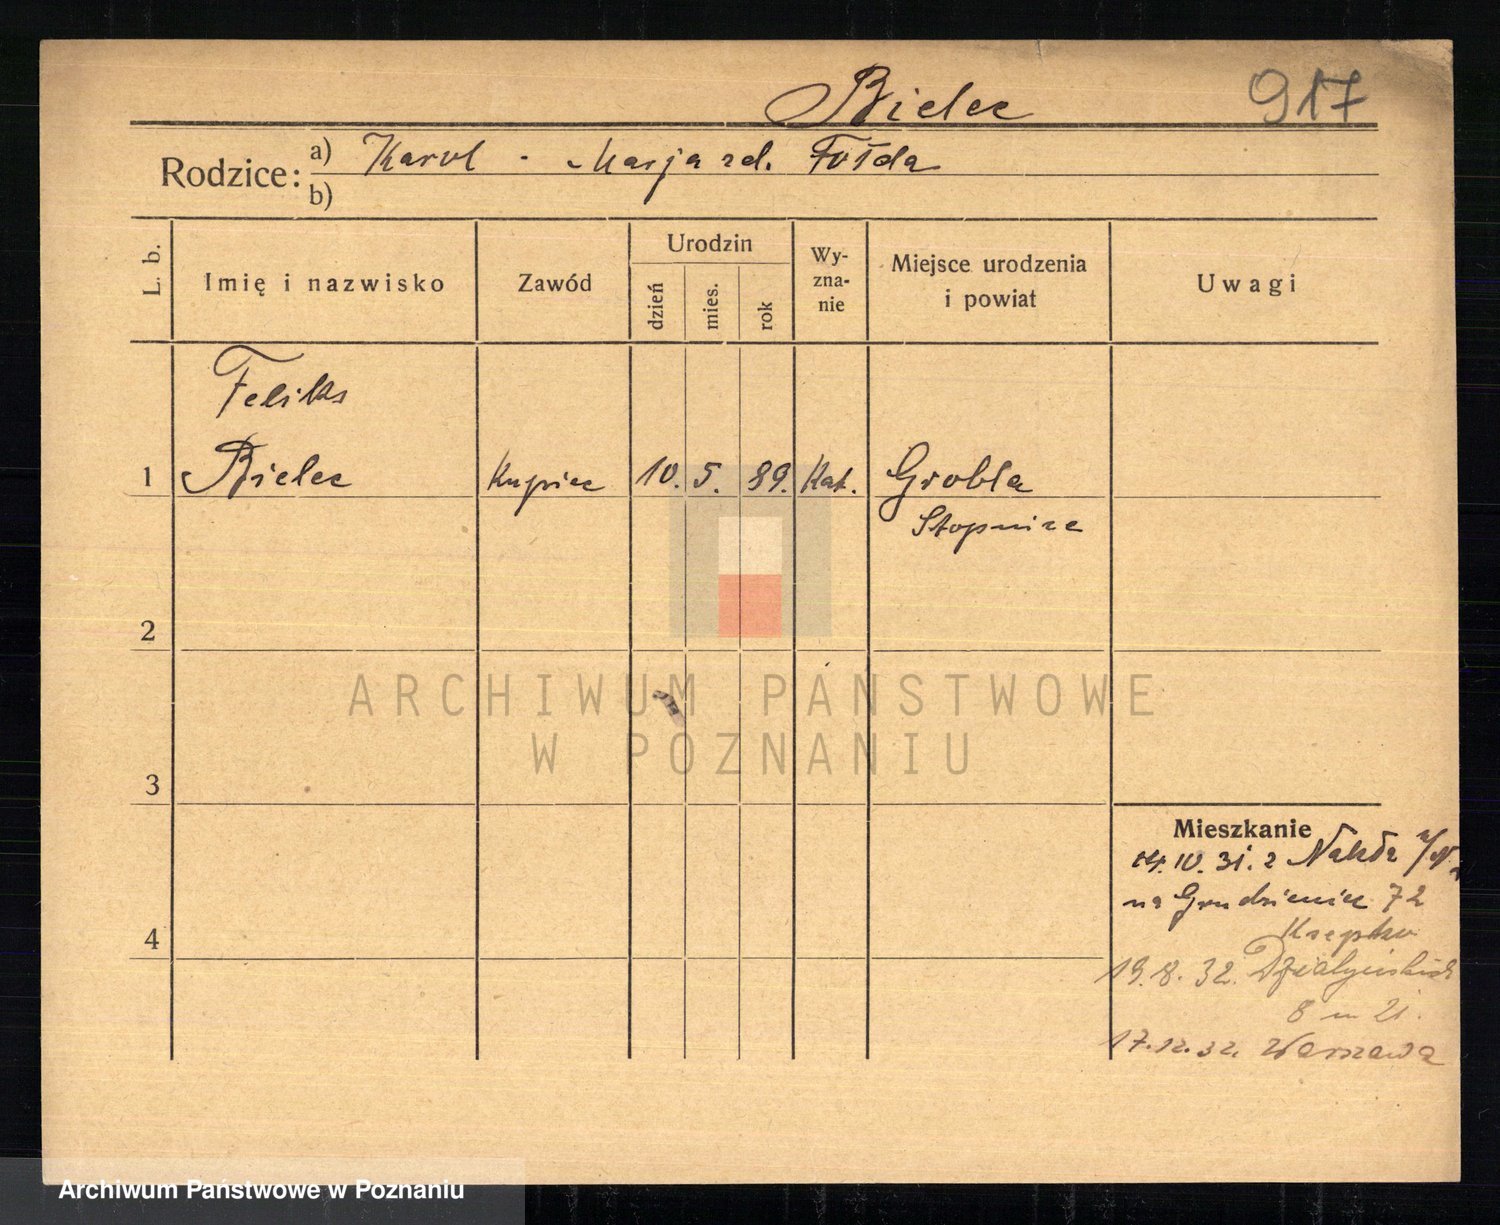 Bielec 917
Rodzice: a) Karol - Marja zd. Fołda
b)
L. b. Imię i nazwisko Zawód Urodzin dzień mies. rok Wy-zna-nie Miejsce urodzenia i powiat Uwagi
Feliks
1 Bielec Kupiec 10. 5. 89. Kat. Grobla
Stopnica
2
ARCHIWUM PAŃSTWOWE
W POZNANIU
3
Mieszkanie
14. IV. 31. z Nakła n/N.
na Grudzieniec 72
4
19.8.32. Działyńskich
8 m 21.
17.12.32. Warszawa
Archiwum Państwowe w Poznaniu